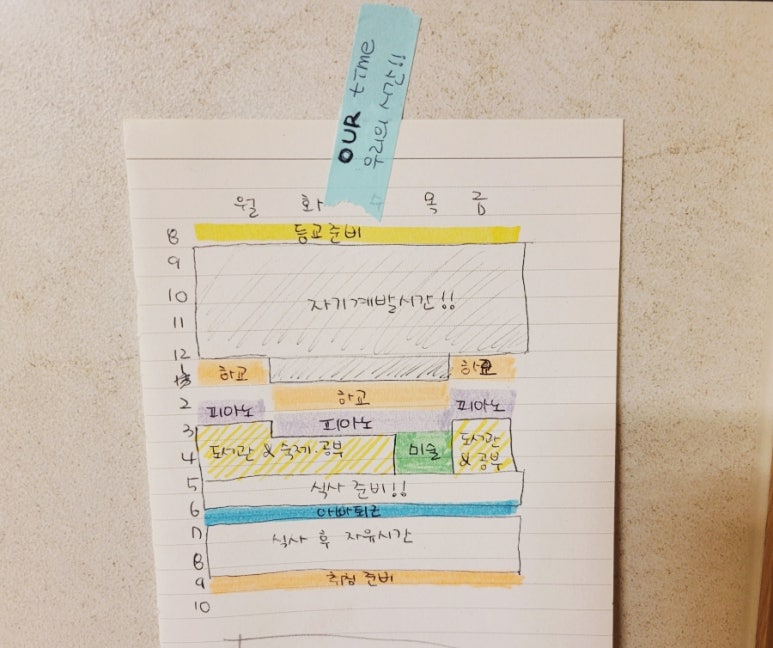 OUR time
우리의 시간!!
월 화 수 목 금
8 등교준비
9
10 자기계발시간!!
11
12
1 하교 하교
하교
2 피아노 피아노
피아노
3
도서관 & 숙제·공부 미술 도서관 & 공부
4
5 식사 준비!!
6 아빠퇴근
7 식사 후 자유시간
8
9 취침 준비
10